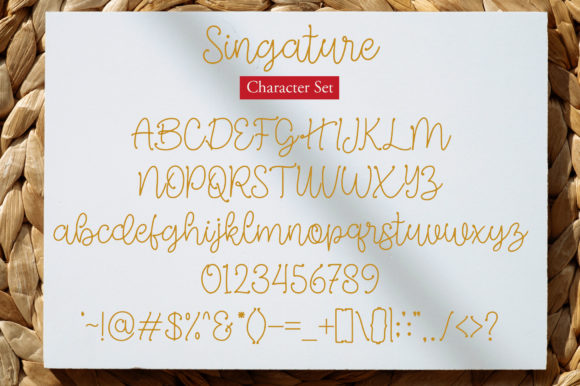 Singature
Character Set
ABCDEFGHIJKLM
NOPQRSTUVWXYZ
abcdefghijklmnopqrstuvwxyz
0123456789
`~!@#$%^&*()-=_+[]\{}|;:'",./<>?